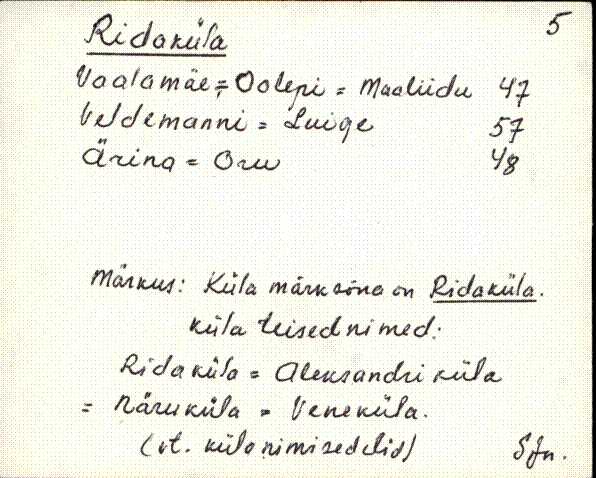 5
Ridaküla
Vaalamäe = Oolepi = Maaliidu 47
Veldemanni = Luige 57
Ärina = Oru 48
Märkus: Küla märksõna on Ridaküla.
Küla teised nimed:
Ridaküla = Aleksandri küla
= Näruküla = Veneküla.
(vt. külanimisedelid)